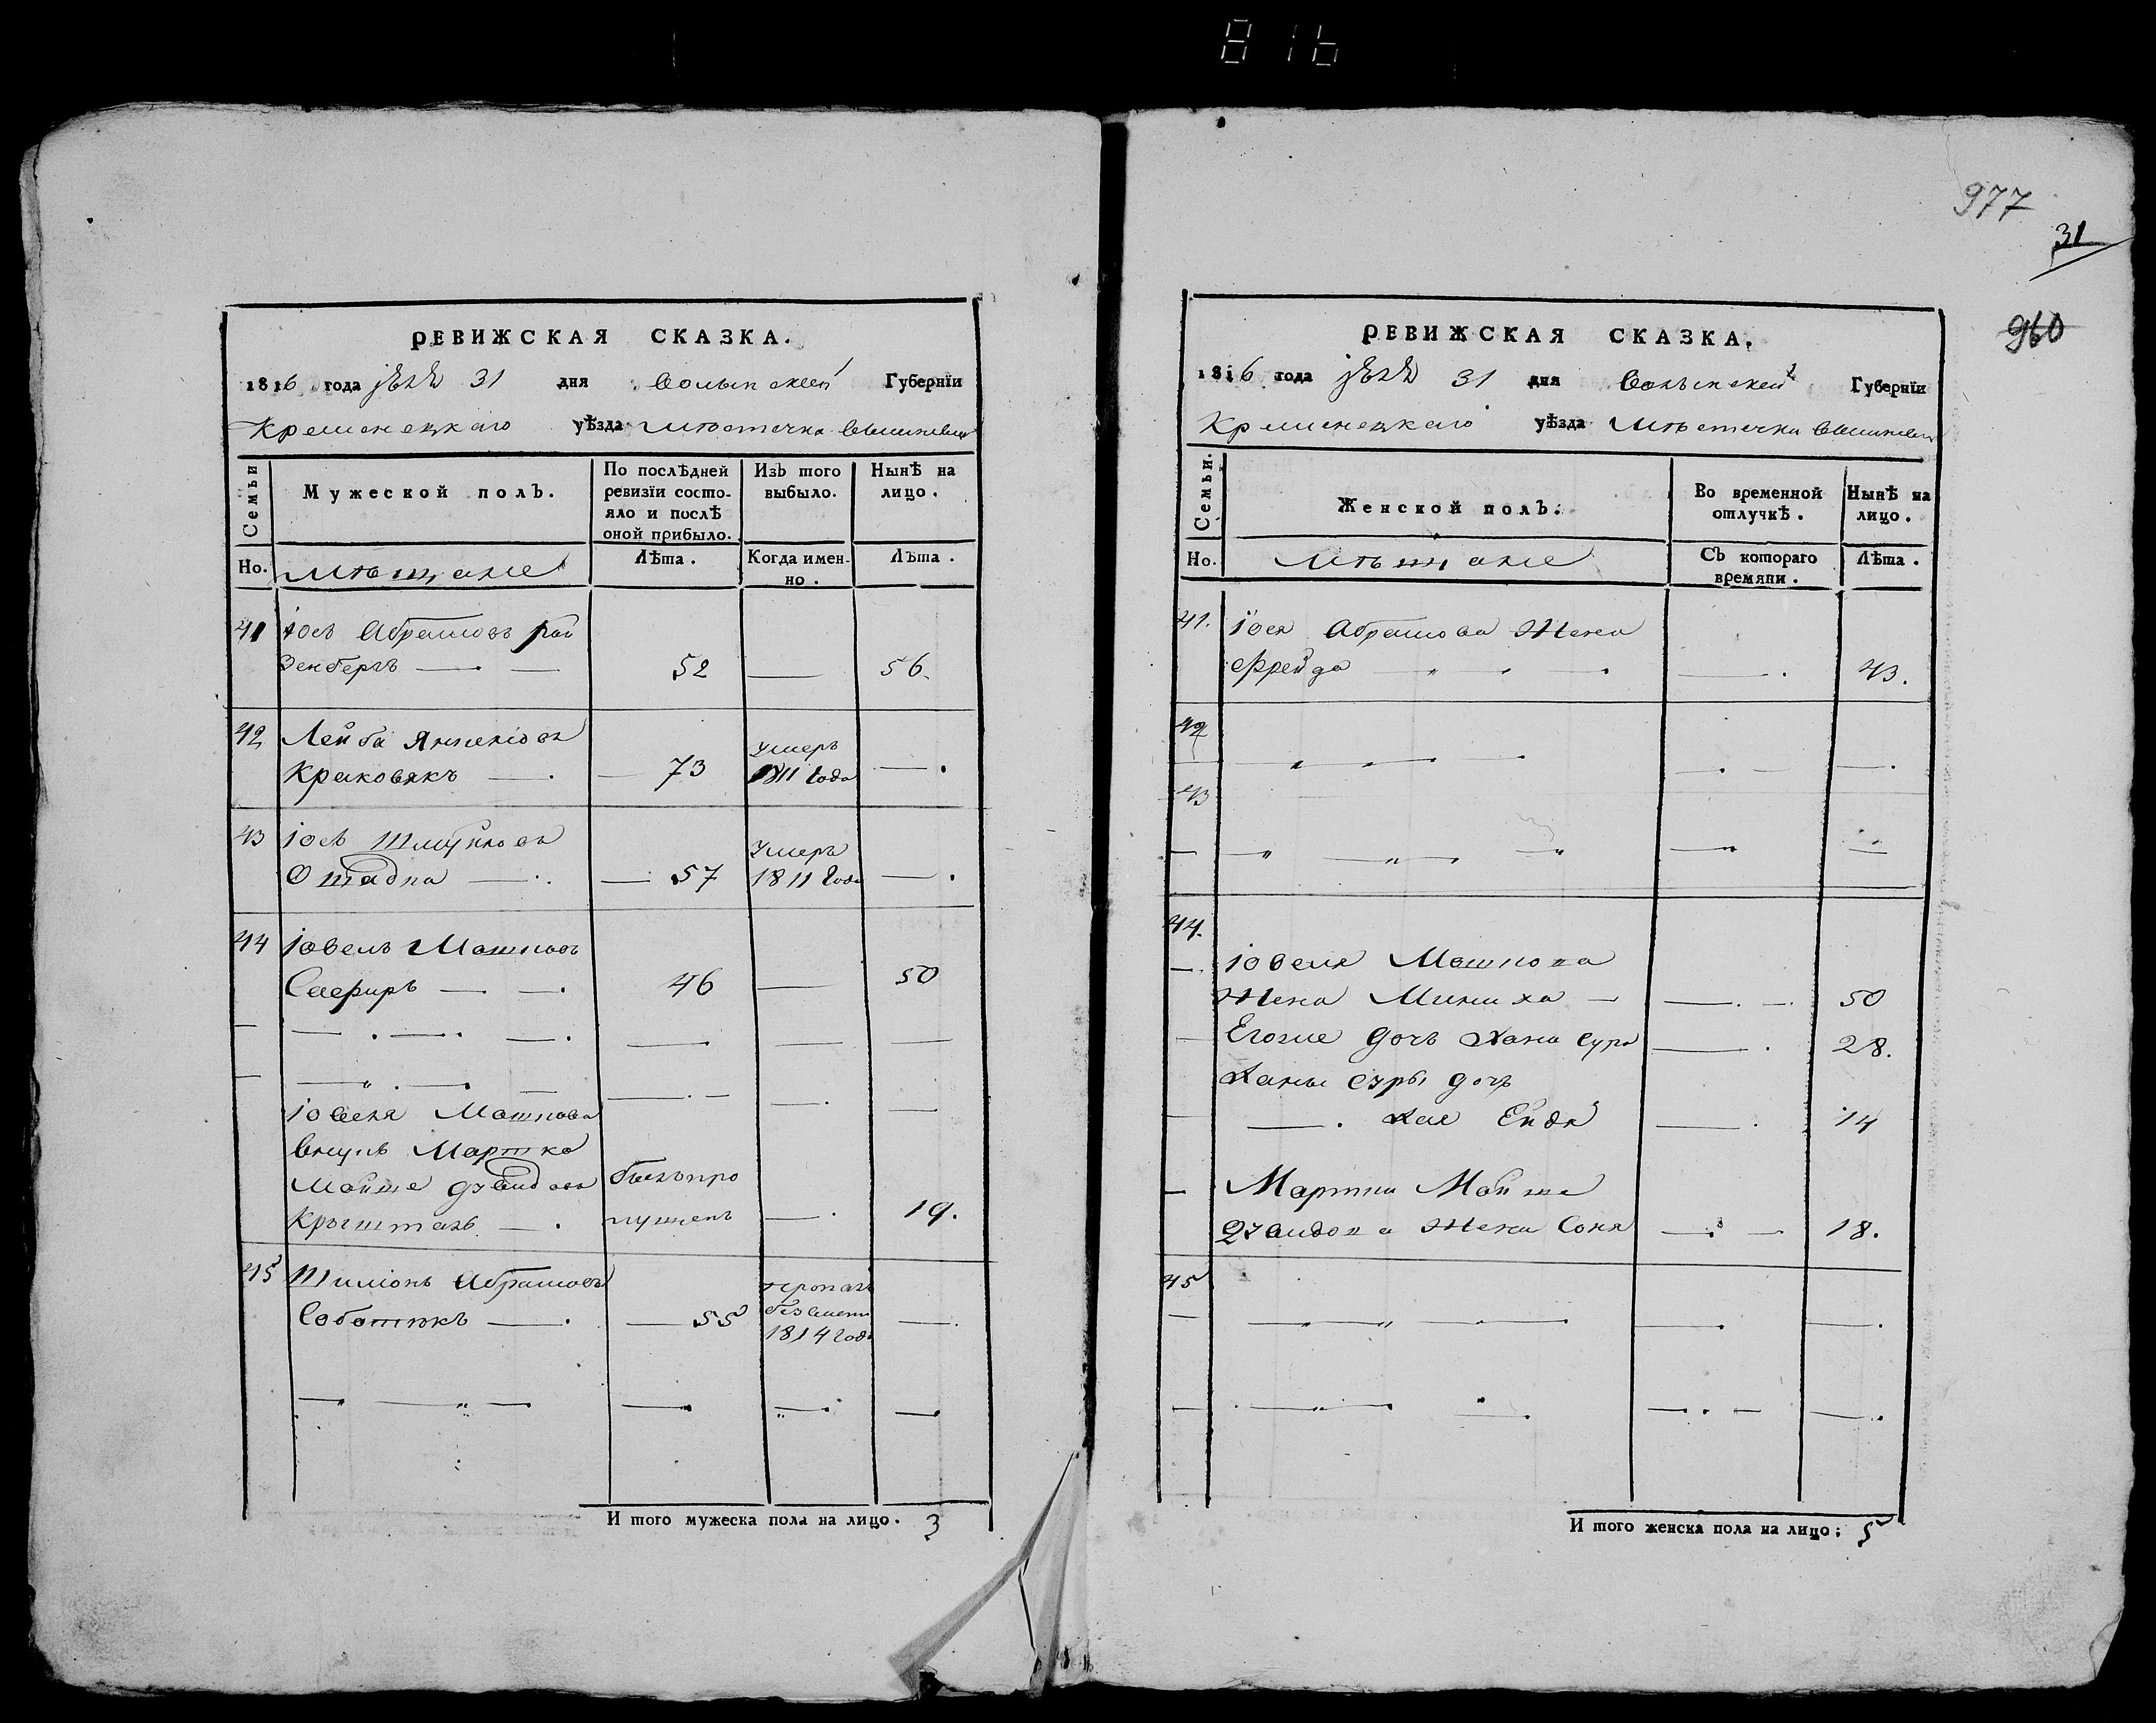 816
977
31
960
РЕВИЖСКАЯ СКАЗКА.
1816 года 31 дня Волынской Губернїи
Кременецкаго уѣзда мѣстечка
Семьи
Мужеской полъ.
По послѣдней ревизїи состо-
яло и послѣ
оной прибыло.
Изъ того
выбыло.
Нынѣ на
лицо.
Но.
Мѣщане
Лѣта.
Когда имен-
но.
Лѣта.
41 Iось Абрамовъ Рай
зенбергъ 52 — 56.
42 Лейба Янкеліовъ
Краковякъ — 73 умеръ 1811 года —
43 Iось Шмуйловъ
57 умеръ 1811 года —
44 Iовель Мошковъ
Сафиръ 46 — 50
Iовеля Мошкова
внукъ Мартко
Мойше
Крыштал былъ про
пущенъ — 19.
45 Шиміонъ Абрамовъ
— 55 1814 года —
И того мужеска пола на лицо. 3
РЕВИЖСКАЯ СКАЗКА.
1816 года 31 дня Волынской Губернїи
Кременецкаго уѣзда мѣстечка
Семьи.
Женской полъ.
Во временной
отлучкѣ.
Нынѣ на
лицо.
Но.
Мѣщане
Съ котораго
времяни.
Лѣта.
41. Iося Абрамова жена
Фрейда — 43.
42
43
44.
Iовеля Мошкова
жена — 50
Егоже дочь Хана Сура — 28.
Ханы Суры дочь
Хая Ейдя — 14
Мойше
жена Соня — 18.
45
И того женска пола на лицо; 5